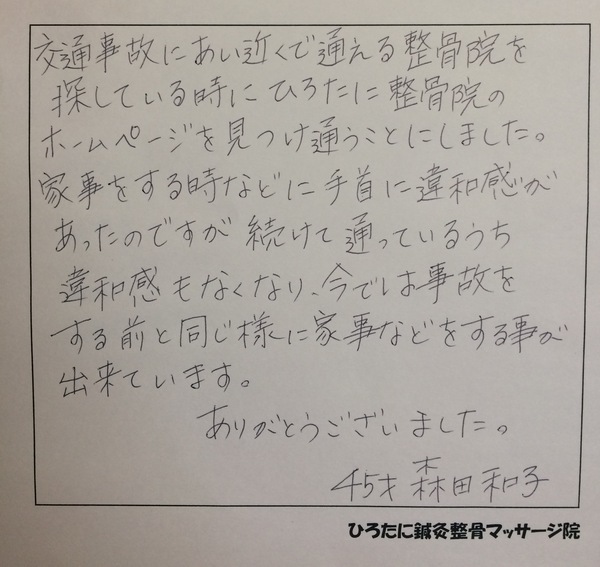 交通事故にあい近くで通える整骨院を
探している時にひろたに整骨院の
ホームページを見つけ通うことにしました。
家事をする時などに手首に違和感が
あったのですが続けて通っているうち
違和感もなくなり、今では事故を
する前と同じ様に家事などをする事が
出来ています。
ありがとうございました。
45才 森田和子
ひろたに鍼灸整骨マッサージ院